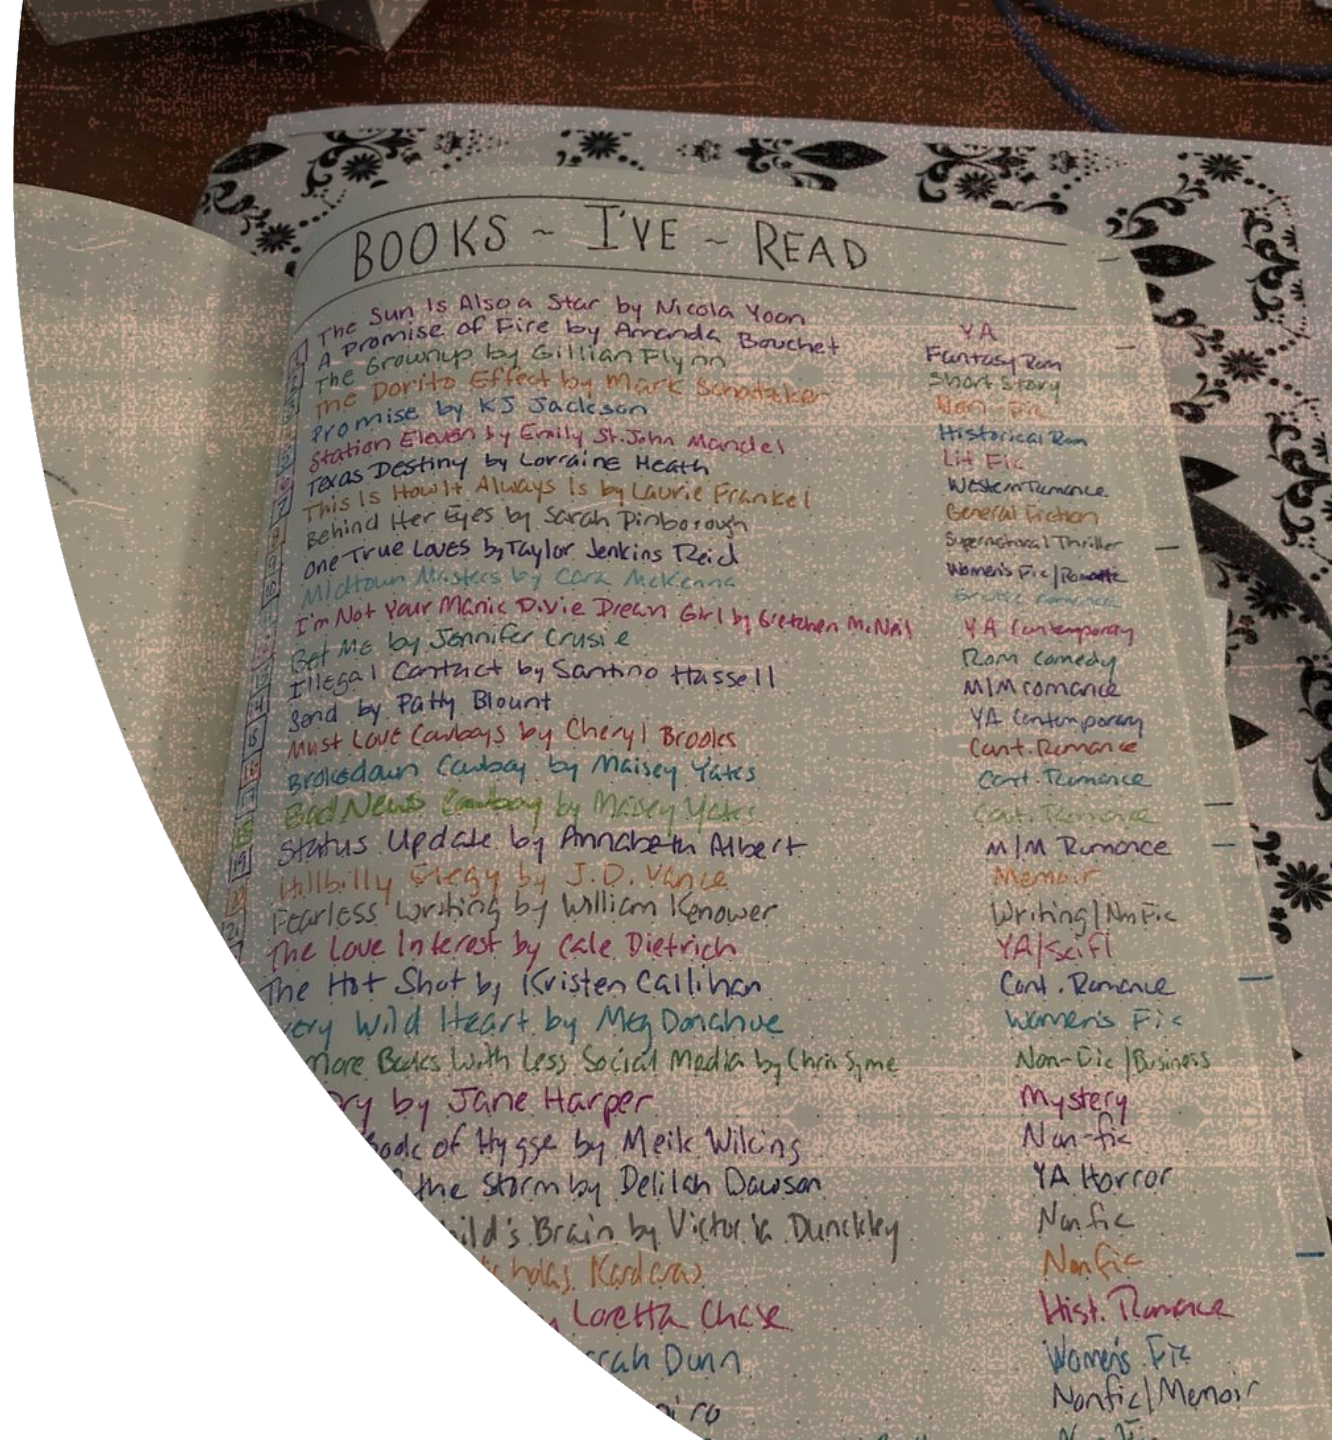 BOOKS ~ I'VE ~ READ
The Sun Is Also a Star by Nicola Yoon YA
A Promise of Fire by Amanda Bouchet Fantasy Rom
The Grownup by Gillian Flynn Short Story
The Dorito Effect by Mark Schatzker Non-Fic
Promise by KJ Jackson Historical Rom
Station Eleven by Emily St. John Mandel Lit Fic
Texas Destiny by Lorraine Heath Western Romance
This Is How It Always Is by Laurie Frankel General Fiction
Behind Her Eyes by Sarah Pinborough Supernatural Thriller
One True Loves by Taylor Jenkins Reid Women's Fic/Romance
Midtown Masters by Cara McKenna Erotic romance
I'm Not Your Manic Pixie Dream Girl by Gretchen McNeil YA Contemporary
Bet Me by Jennifer Crusie Rom Comedy
Illegal Contact by Santino Hassell M/M romance
Send by Patty Blount YA Contemporary
Must Love Cowboys by Cheryl Brooks Cont. Romance
Brokedown Cowboy by Maisey Yates Cont. Romance
Bad News Cowboy by Maisey Yates Cont. Romance
19 Status Update by Annabeth Albert M/M Romance
Hillbilly Elegy by J.D. Vance Memoir
21 Fearless Writing by William Kenower Writing/Non Fic
The Love Interest by Cale Dietrich YA/SciFi
The Hot Shot by Kristen Callihan Cont. Romance
very Wild Heart by Meg Donahue Women's Fic
More Books With Less Social Media by Chris Syme Non-Fic/Business
ry by Jane Harper Mystery
Book of Hygge by Meik Wiking Non-fic
the Storm by Delilah Dawson YA Horror
hild's Brain by Victoria Dunckley Nonfic
cholas Kardaras Nonfic
Loretta Chase Hist. Romance
rah Dunn Women's Fic
piro Nonfic/Memoir